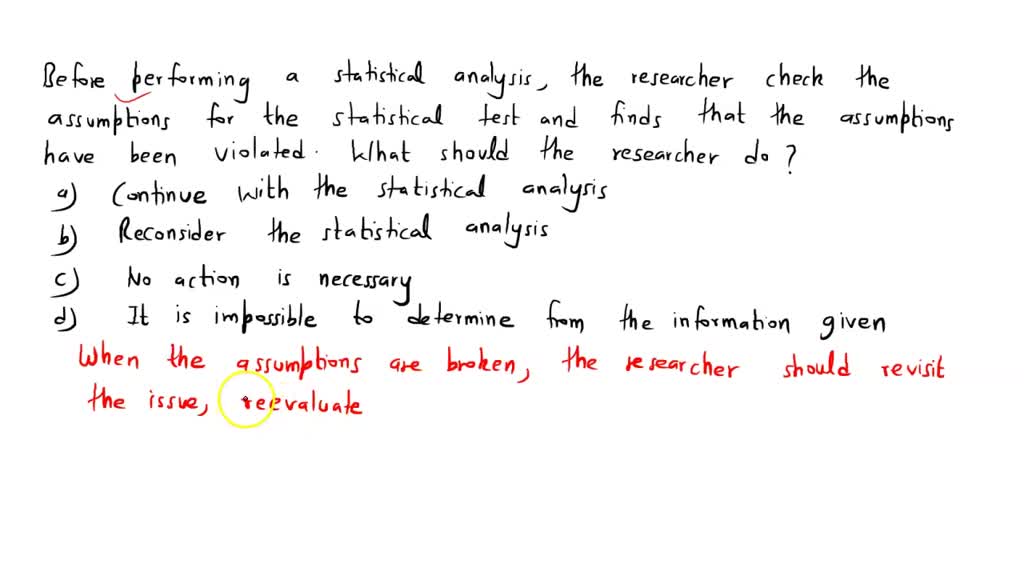 Before performing a statistical analysis, the researcher check the
assumptions for the statistical test and finds that the assumptions
have been violated. What should the researcher do?
a) Continue with the statistical analysis
b) Reconsider the statistical analysis
c) No action is necessary
d) It is impossible to determine from the information given
When the assumptions are broken, the researcher should revisit
the issue, reevaluate